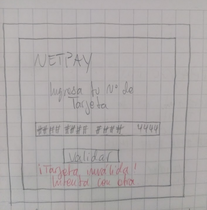 NETPAY
Ingresa tu N° de
Tarjeta
#### #### #### 4444
Validar
¡Tarjeta invalida!
intenta con otra